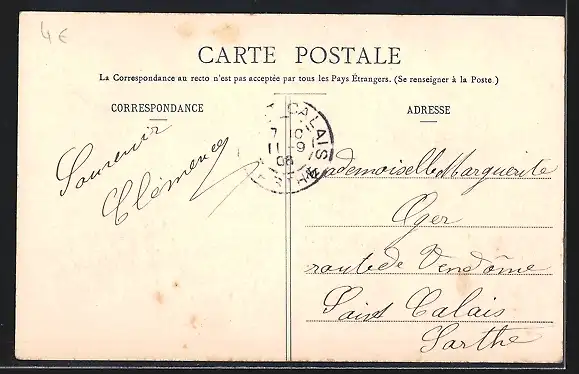 4€
CARTE POSTALE
La Correspondance au recto n'est pas acceptée par tous les Pays Étrangers. (Se renseigner à la Poste)
CORRESPONDANCE
Souvenir
Clémence
ADRESSE
CALAIS
7 10
11 -9
06
SARTHE
Mademoiselle Marguerite
Oger
route de Vendôme
Saint Calais
Sarthe